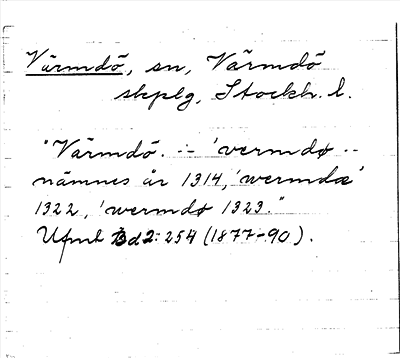 Värmdö, sn, Värmdö
skplg, Stockh. l.
"Värmdö. -- 'vermdø --
nämnes år 1314, 'wermdæ'
1322, 'wermdø 1323."
Ufmt Bd 2: 254 (1877-90).